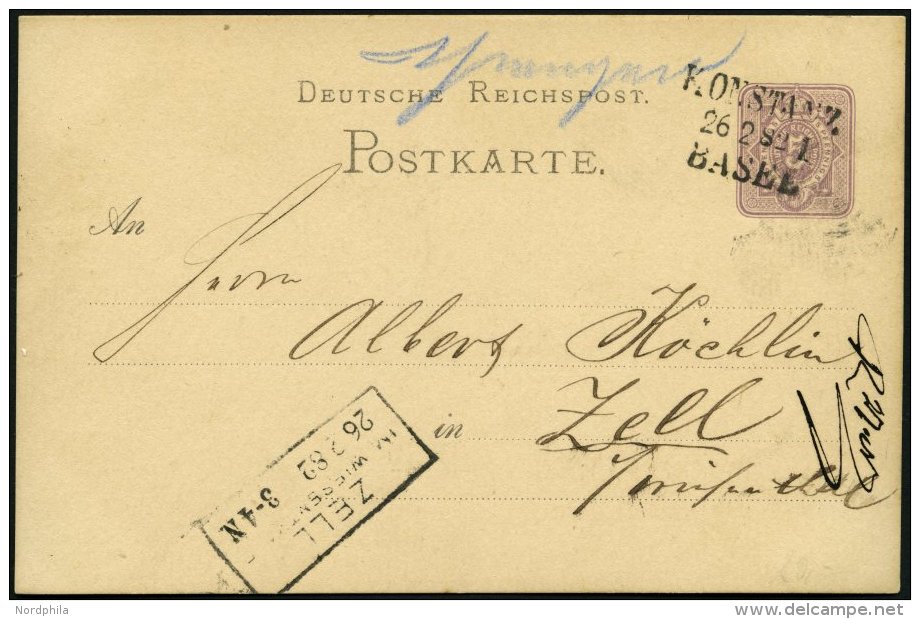 DEUTSCHE REICHSPOST.
POSTKARTE.
KONSTANZ.
26 2 82 I
BASEL
An
Herrn
Albert Köchlin
in Zell
Wiesenthal
ZELL
IM WIESENT
26 2 82 3-4N
Nordphila
www.delcampe.net